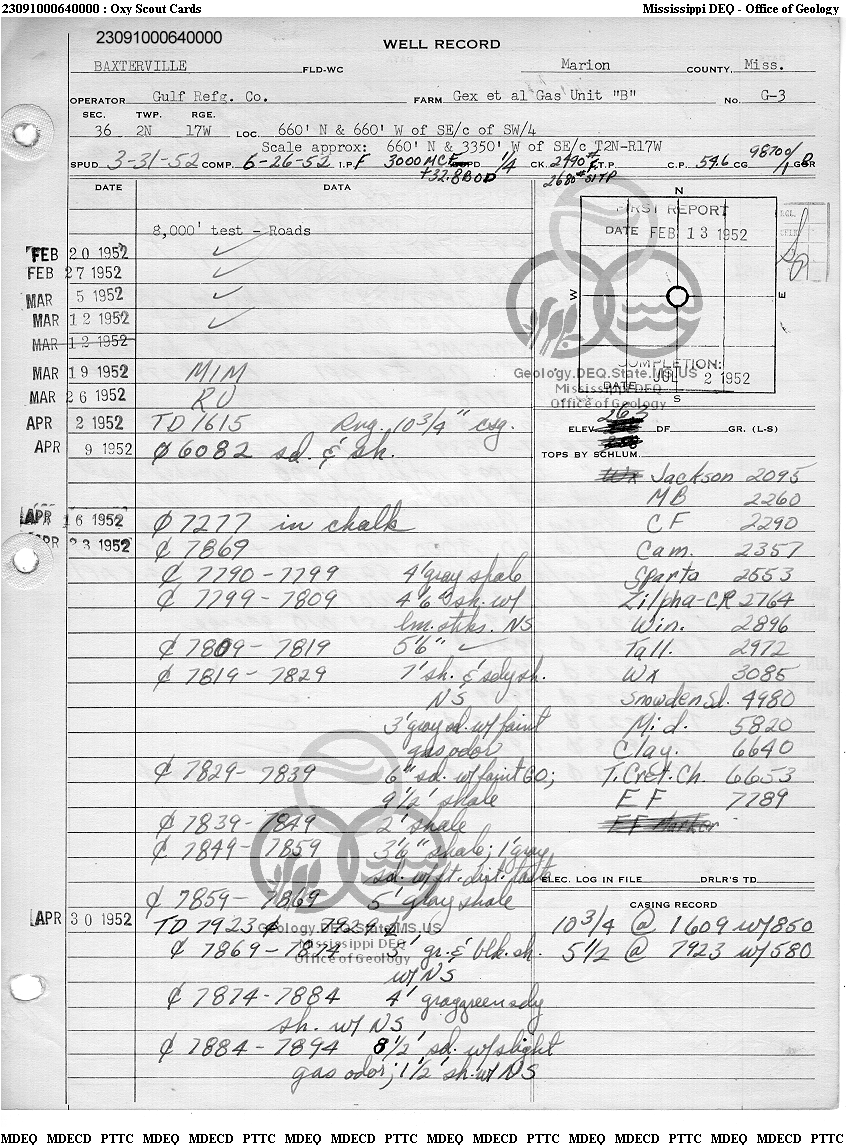 23091000640000 : Oxy Scout Cards Mississippi DEQ - Office of Geology
23091000640000
WELL RECORD
BAXTERVILLE FLD-WC Marion COUNTY, Miss.
OPERATOR Gulf Refg. Co. FARM Gex et al Gas Unit "B" No. G-3
SEC. TWP. RGE.
36 2N 17W LOC. 660' N & 660' W of SE/c of SW/4
Scale approx: 660' N & 3350' W of SE/c T2N-R17W
SPUD 3-31-52 COMP. 6-26-52 I.P. F 3000 MCF PD 1/4 CK. 2490# F.T.P. C.P. 59.6 CG 98700/1 GOR
+32.8 BOD 2680# SITP
DATE DATA
8,000' test - Roads
FEB 20 1952 ✓
FEB 27 1952 ✓
MAR 5 1952 ✓
MAR 12 1952 ✓
MAR 12 1952
MAR 19 1952 MIM
MAR 26 1952 RU
APR 2 1952 TD 1615 Rng. 10 3/4" csg.
APR 9 1952 Ø 6082 sd. & sh.
APR 16 1952 Ø 7277 in chalk
APR 23 1952 ₵ 7869
₵ 7790-7799 4' gray shale
₵ 7799-7809 4'6" sh. w/
lm. stks. NS
₵ 7809-7819 5'6" ✓
₵ 7819-7829 7' sh. & sdy sh.
NS
3' gray sd. w/ faint
gas odor
₵ 7829-7839 6" sd. w/ faint GO;
9 1/2' shale
₵ 7839-7849 2' shale
₵ 7849-7859 3'6" shale; 1' gray
sd. w/ ft. dist. taste
₵ 7859-7869 5' gray shale
APR 30 1952 TD 7923
₵ 7869-7874 3' gr. & blk. sh.
w/ NS
₵ 7874-7884 4' gray green sdy
sh. w/ NS
₵ 7884-7894 8 1/2' sd. w/ slight
gas odor; 1 1/2' sh. w/ NS
N
FIRST REPORT
DATE FEB 13 1952
W E
COMPLETION:
DATE JUL 2 1952
S
Geology.DEQ.State.MS.US
Mississippi DEQ
Office of Geology
263
ELEV. DF. GR. (L-S)
TOPS BY SCHLUM.
Wx Jackson 2095
MB 2260
CF 2290
Cam. 2357
Sparta 2553
Zilpha-CR 2764
Win. 2896
Tall. 2972
Wx 3085
Snowden Sd. 4980
Mid. 5820
Clay. 6640
T. Cret. Ch. 6653
EF 7789
EF Marker
ELEC. LOG IN FILE DRLR'S TD
CASING RECORD
10 3/4 @ 1609 w/850
5 1/2 @ 7923 w/580
Geology.DEQ.State.MS.US
Mississippi DEQ
Office of Geology
MDEQ MDECD PTTC MDEQ MDECD PTTC MDEQ MDECD PTTC MDEQ MDECD PTTC MDEQ MDECD PTTC MDEQ MDECD PTTC MDEQ